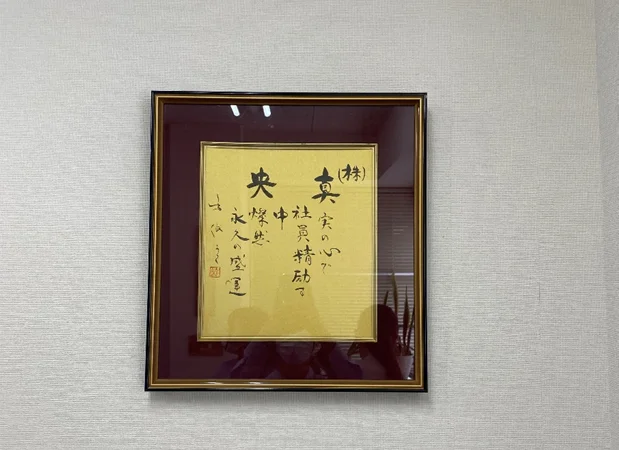 (株)
真実の心で
社員精励
中
央燦然
永久の盛運